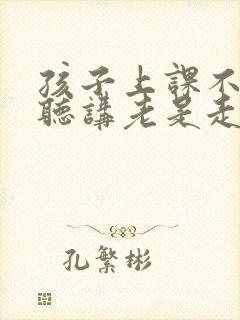 孩子上課不
聽講老是走
孔繁彬